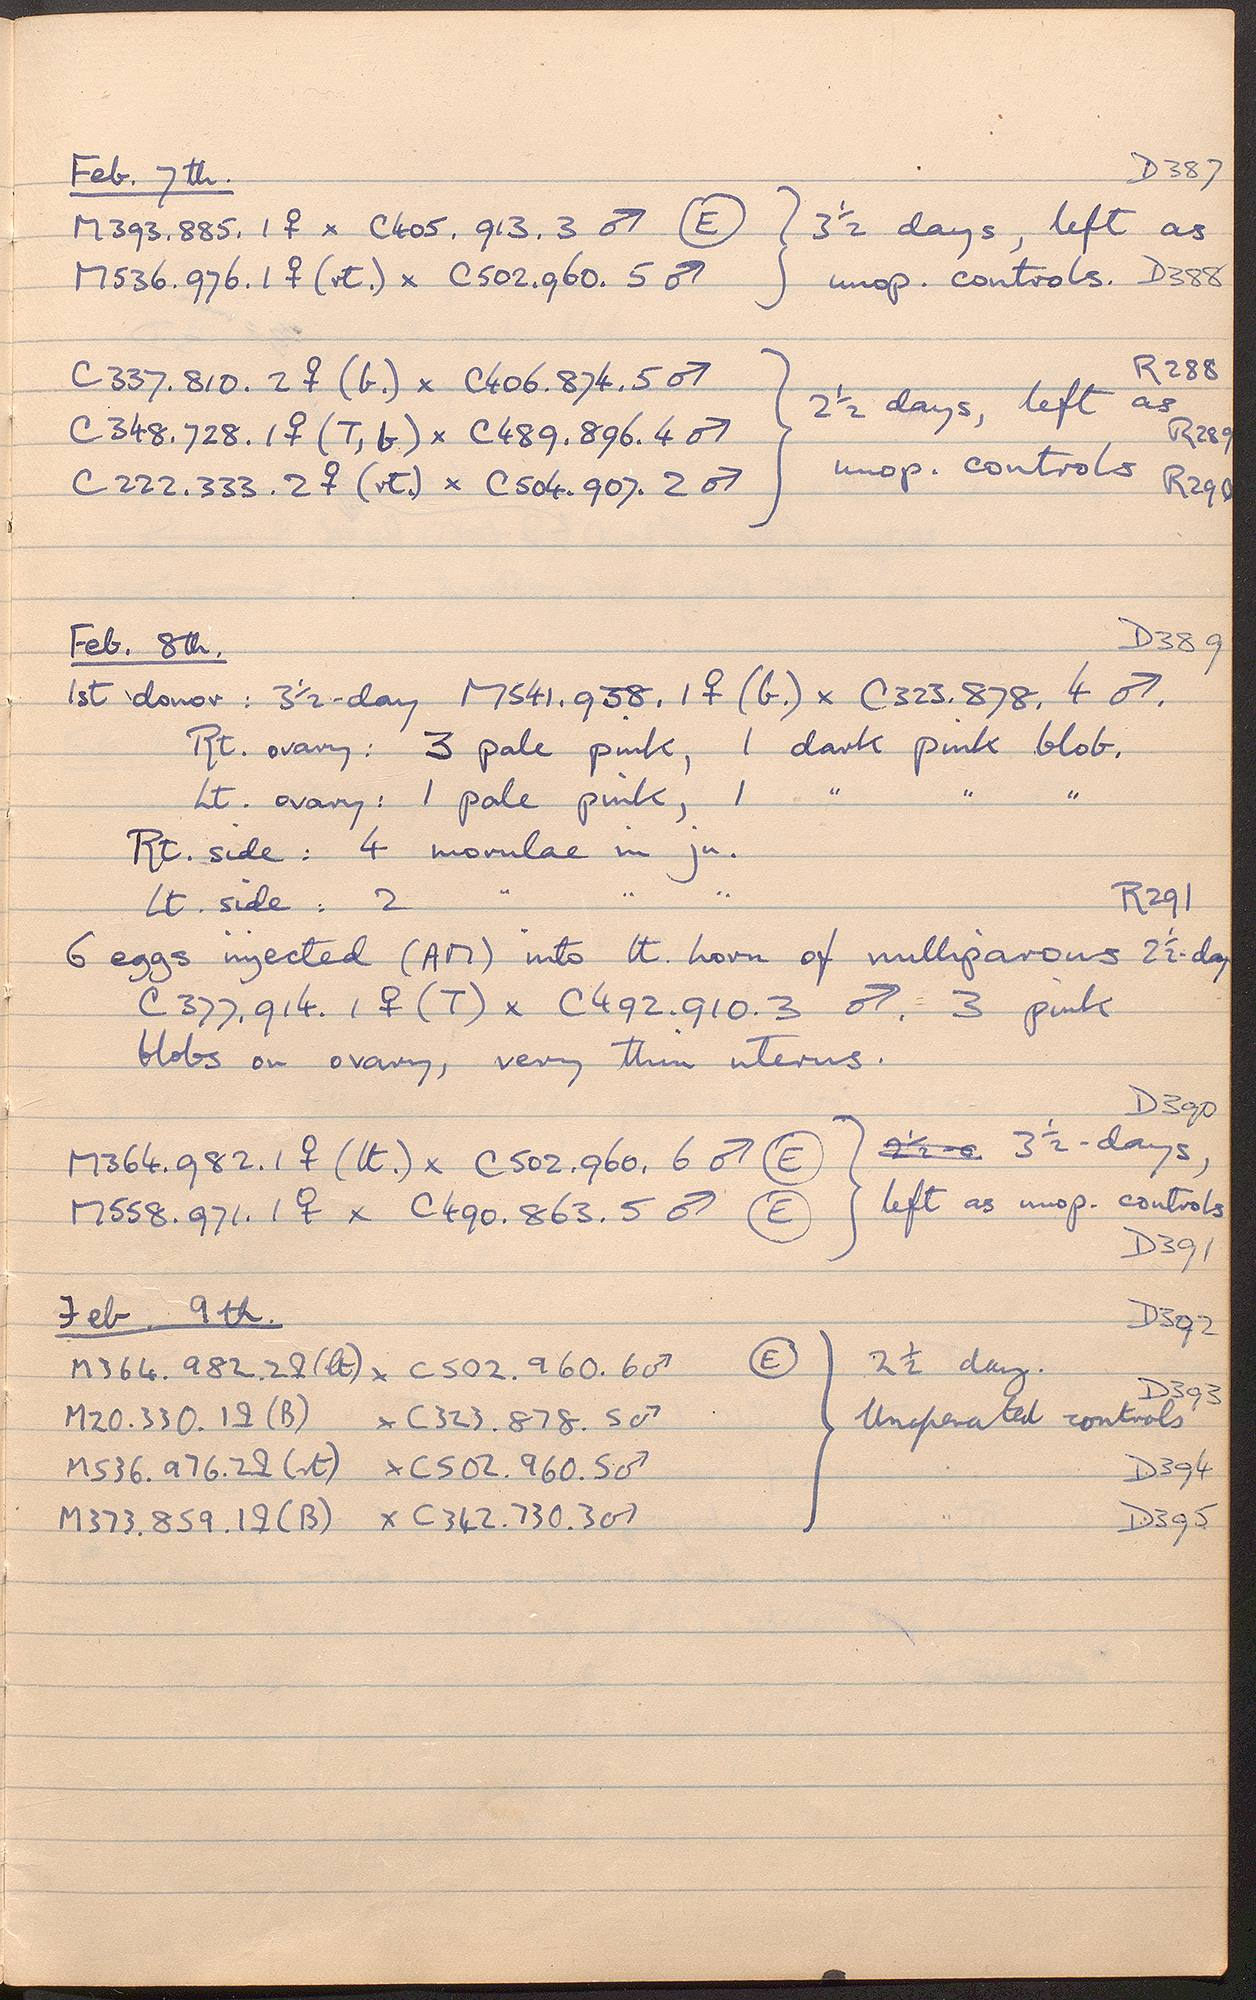 Feb. 7th. D387
M393.885.1♀ x C405.913.3 ♂ (E) } 3½ days, left as
M536.976.1♀ (rt.) x C502.960.5 ♂ } unop. controls. D388
C337.810.2♀ (b.) x C406.874.5 ♂ R288
C348.728.1♀ (T, b) x C489.896.4 ♂ } 2½ days, left as R289
C222.333.2♀ (rt.) x C504.907.2 ♂ unop. controls R290
Feb. 8th. D389
1st donor : 3½-day M541.938.1♀ (b.) x C323.878.4 ♂.
Rt. ovary: 3 pale pink, 1 dark pink blob.
Lt. ovary: 1 pale pink, 1 " " "
Rt. side : 4 morulae in ju.
Lt. side : 2 " " " R291
6 eggs injected (AM) into lt. horn of nulliparous 2½-day
C377.914.1♀ (T) x C492.910.3 ♂. 3 pink
blobs on ovary, very thin uterus.
D390
M364.982.1♀ (lt.) x C502.960.6 ♂ (E) } 3½-days,
M558.971.1♀ x C490.863.5 ♂ (E) } left as unop. controls
D391
Feb. 9th. D392
M364.982.2♀ (lt) x C502.960.6♂ (E) } 2½ day.
D393
M20.330.1♀ (B) x C323.878.5♂ Unoperated controls
M536.976.2♀ (rt) x C502.960.5♂ D394
M373.859.1♀ (B) x C342.730.3♂ " D395